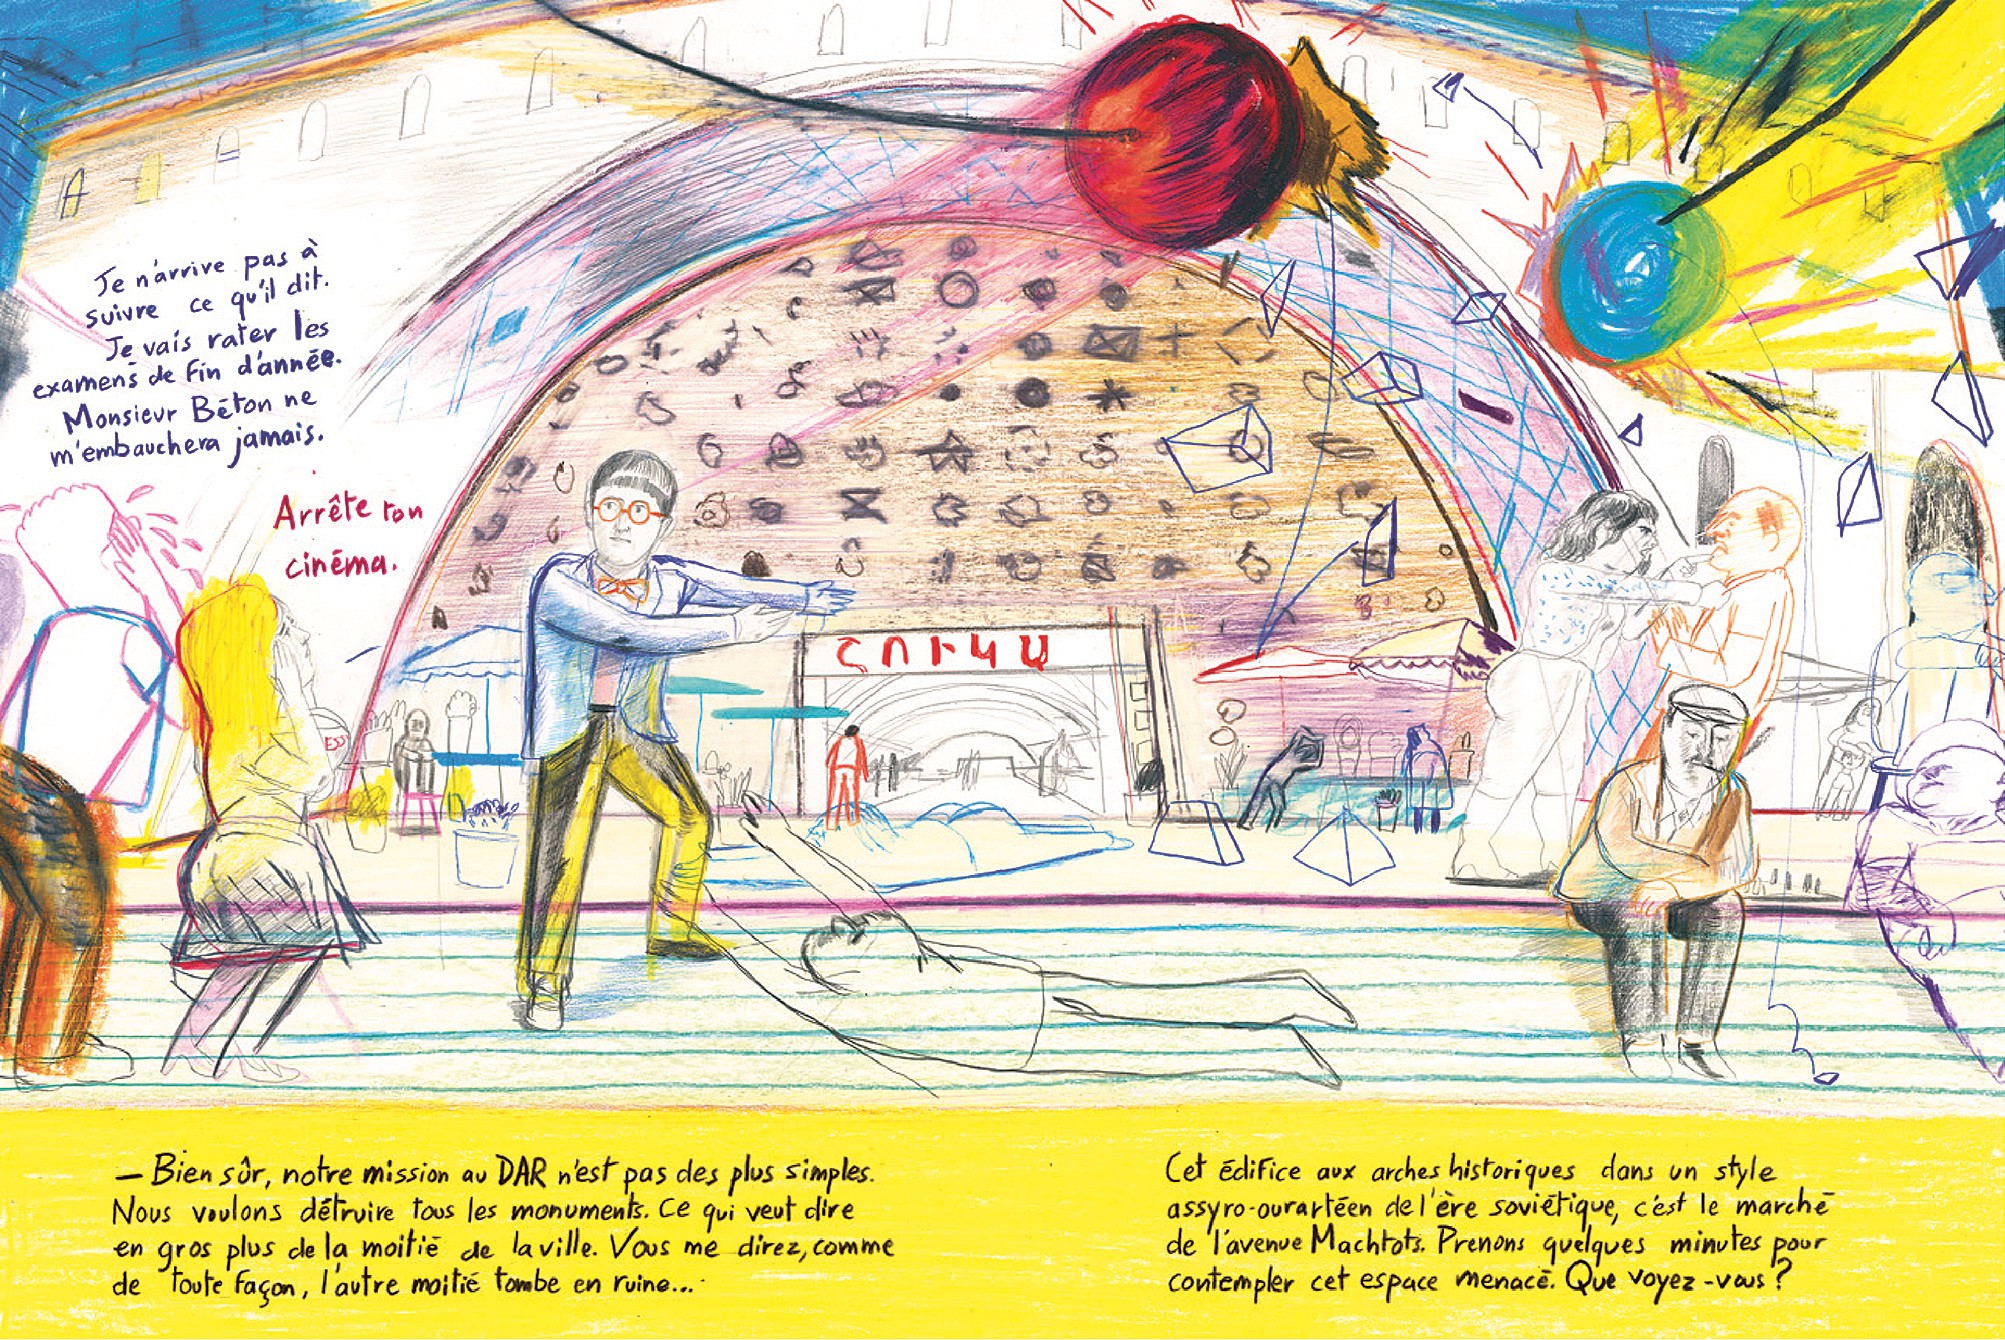 Je n'arrive pas à
suivre ce qu'il dit.
Je vais rater les
examens de fin d'année.
Monsieur Béton ne
m'embauchera jamais.
Arrête ton
cinéma.
ESS
ՇՈՒԿԱ
— Bien sûr, notre mission au DAR n'est pas des plus simples.
Nous voulons détruire tous les monuments. Ce qui veut dire
en gros plus de la moitié de la ville. Vous me direz, comme
de toute façon, l'autre moitié tombe en ruine...
Cet édifice aux arches historiques dans un style
assyro-ourartéen de l'ère soviétique, c'est le marché
de l'avenue Machtots. Prenons quelques minutes pour
contempler cet espace menacé. Que voyez-vous ?